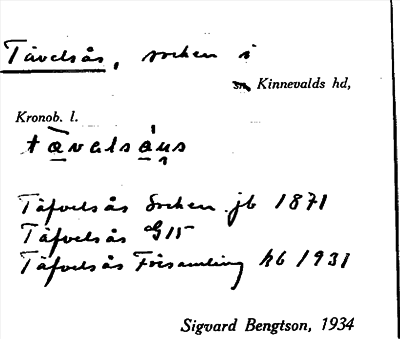 Tävelsås, socken i
sn Kinnevalds hd,
Kronob. l.
tävalsåus
Täfvelsås Socken jb 1871
Täfvelsås G15
Täfvelsås Församling kb 1931
Sigvard Bengtson, 1934